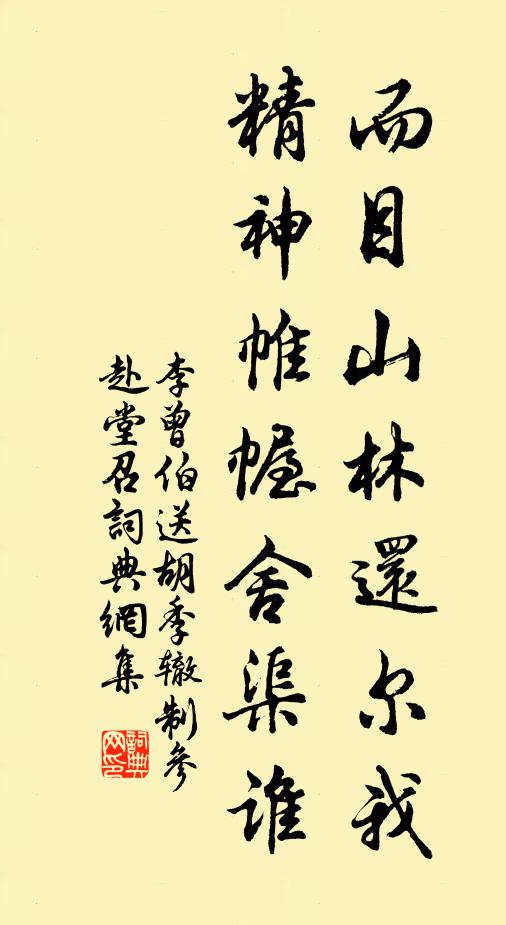 而目山林還尔我
精神帷幄舍渠誰
李曾伯送胡季辙制參
赴堂召詞典網集
詞典网印